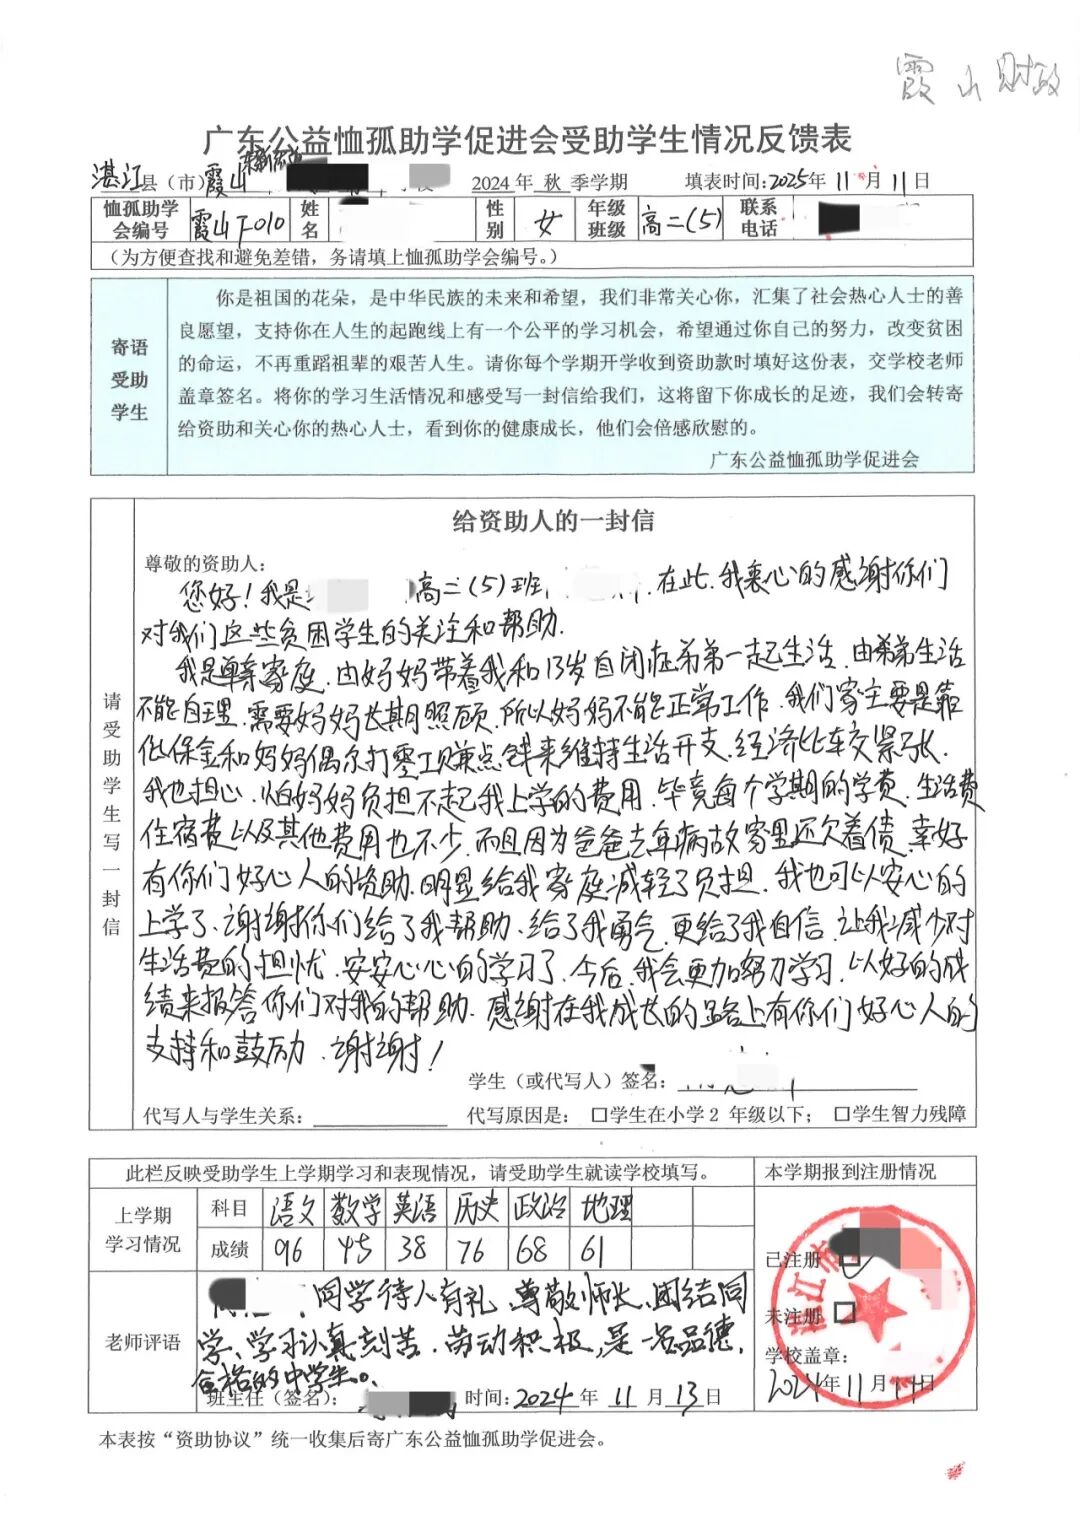 霞山财政
广东公益恤孤助学促进会受助学生情况反馈表
湛江县(市)霞山 2024年 秋 季学期 填表时间:2025年 11 月 11 日
恤孤助学会编号 霞山F010 姓名 性别 女 年级班级 高二(5) 联系电话
(为方便查找和避免差错,务请填上恤孤助学会编号。)
寄语受助学生
你是祖国的花朵,是中华民族的未来和希望,我们非常关心你,汇集了社会热心人士的善
良愿望,支持你在人生的起跑线上有一个公平的学习机会,希望通过你自己的努力,改变贫困
的命运,不再重蹈祖辈的艰苦人生。请你每个学期开学收到资助款时填好这份表,交学校老师
盖章签名。将你的学习生活情况和感受写一封信给我们,这将留下你成长的足迹,我们会转寄
给资助和关心你的热心人士,看到你的健康成长,他们会倍感欣慰的。
广东公益恤孤助学促进会
请受助学生写一封信
给资助人的一封信
尊敬的资助人:
您好!我是 高二(5)班 在此,我衷心的感谢你们
对我们这些贫困学生的关注和帮助.
我是单亲家庭,由妈妈带着我和13岁自闭症弟弟一起生活,由弟弟生活
不能自理,需要妈妈长期照顾,所以妈妈不能正常工作,我们家主要是靠
低保金和妈妈偶尔打零工赚点钱来维持生活开支,经济比较紧张,
我也担心,怕妈妈负担不起我上学的费用,毕竟每个学期的学费,生活费
住宿费以及其他费用也不少,而且因为爸爸去年病故家里还欠着债,幸好
有你们好心人的资助,明显给我家庭减轻了负担,我也可以安心的
上学了、谢谢你们给了我帮助、给了我勇气,更给了我自信,让我减少对
生活费的担忧,安安心心的学习了,今后,我会更加努力学习,以好的成
绩来报答你们对我的帮助,感谢在我成长的路上有你们好心人的
支持和鼓励、谢谢!
学生(或代写人)签名:
代写人与学生关系: 代写原因是: □学生在小学2 年级以下; □学生智力残障
此栏反映受助学生上学期学习和表现情况,请受助学生就读学校填写。 本学期报到注册情况
上学期学习情况 科目 语文 数学 英语 历史 政治 地理
成绩 96 45 38 76 68 61
老师评语
同学待人有礼,尊敬师长,团结同
学、学习认真刻苦,劳动积极,是一名品德
合格的中学生。
班主任(签名): 时间:2024 年 11 月 13 日
已注册 □
未注册 □
学校盖章:
2024年 11 月 14日
湛江市
本表按“资助协议”统一收集后寄广东公益恤孤助学促进会。